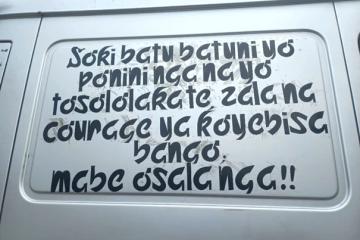 Soki batu batuni yo
ponini nga na yo
tosololakate, zala na
courage ya koyebisa
bango
mabe osala nga!!